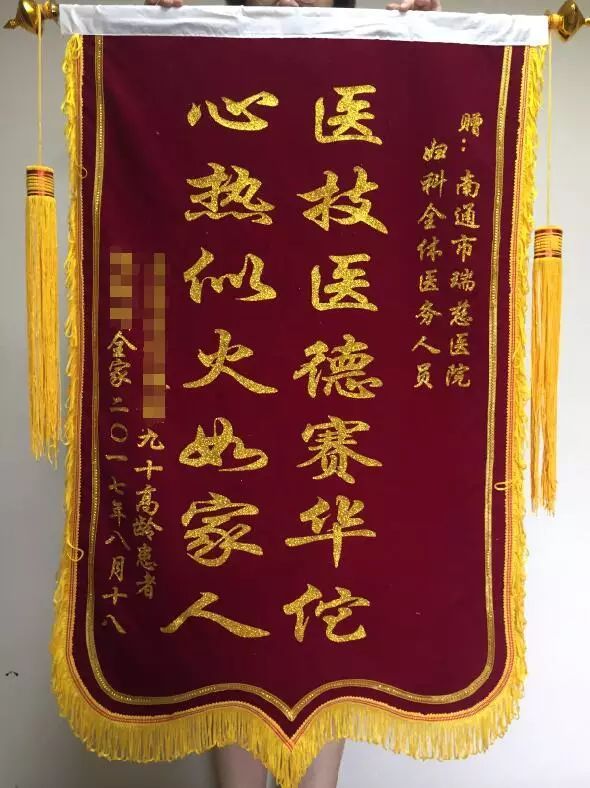 赠：南通市瑞慈医院
妇科全体医务人员
医技医德赛华佗
心热似火如家人
九十高龄患者
全家二〇一七年八月十八